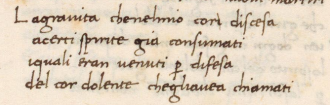 La gravita chenelmio cori discesa
acerti spirite gia consumati
iquali eran venuti p difesa
del cor dolente chegliavea chiamati